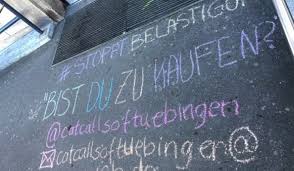 #STOPPT BELÄSTIGU
"BIST DU ZU KAUFEN?
@catcallsoftuebingen
catcallsoftuebingen@